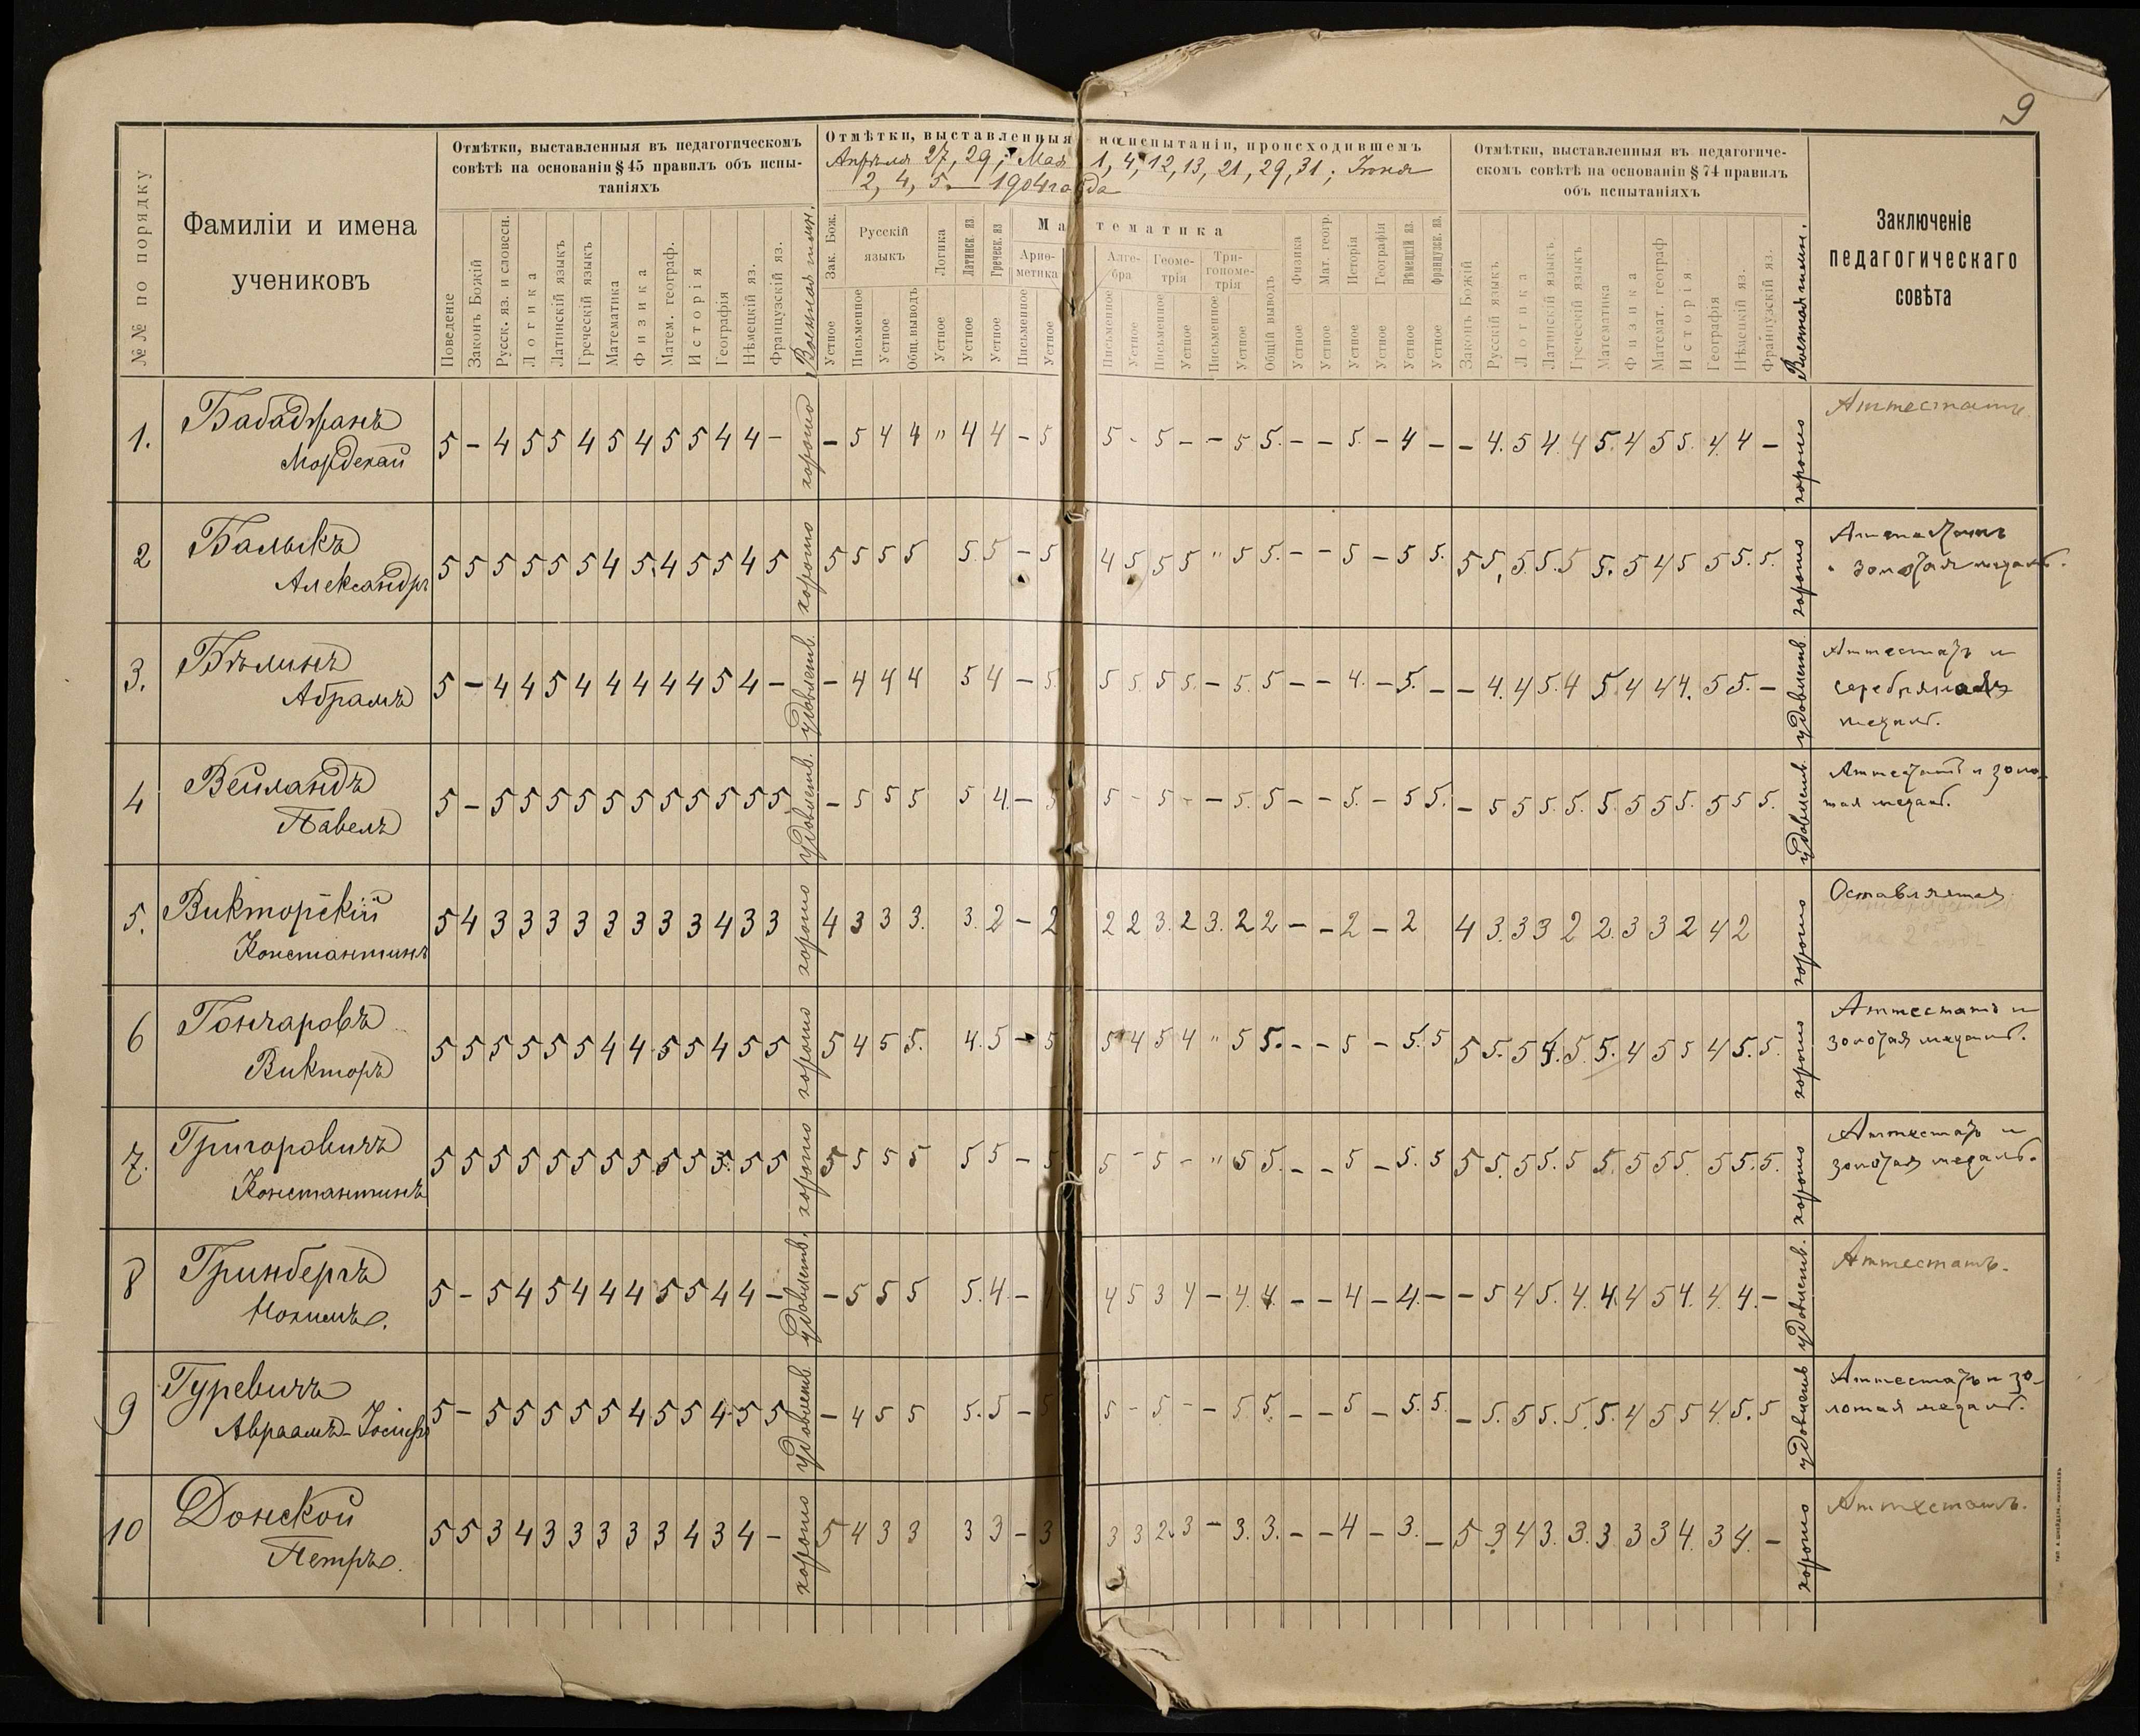 9
№№ по порядку
Фамиліи и имена
учениковъ
Отмѣтки, выставленныя въ педагогическомъ
совѣтѣ на основаніи § 45 правилъ объ испы-
таніяхъ
Поведеніе
Законъ Божій
Русск. яз. и словесн.
Логика
Латинскій языкъ
Греческій языкъ
Математика
Физика
Матем. географ.
Исторія
Географія
Нѣмецкій яз.
Французскій яз.
Отмѣтки, выставленныя на испытаніи, происходившемъ
Апрѣля 27, 29; Мая 1, 4, 12, 13, 21, 29, 31; Іюня
2, 4, 5 — 1904 года
Зак. Бож.
Русскій
языкъ
Логика
Латинск. яз.
Греческ. яз
Математика
Ариѳ-
метика
Алге-
бра
Геоме-
трія
Три-
гономе-
трія
Общій выводъ
Физика
Мат. геогр.
Исторія
Географія
Нѣмецкій яз.
Французск. яз.
Устное
Письменное
Устное
Общ. выводъ
Устное
Устное
Устное
Письменное
Устное
Письменное
Устное
Письменное
Устное
Письменное
Устное
Устное
Устное
Устное
Устное
Устное
Устное
Отмѣтки, выставленныя въ педагогиче-
скомъ совѣтѣ на основаніи § 74 правилъ
объ испытаніяхъ
Законъ Божій
Русскій языкъ
Логика
Латинскій языкъ
Греческій языкъ
Математика
Физика
Математ. географ
Исторія
Географія
Нѣмецкій яз.
Французскій яз.
Заключеніе
педагогическаго
совѣта
1. Бабаджанъ
Мордехай
5 – 4 5 5 4 5 4 5 5 4 4 – хорошо – 5 4 4 " 4 4 – 5 5 - 5 – – 5 5. – – 5. – 4 – – 4. 5 4 4 5. 4 5 5. 4 4 – хорошо
Аттестатъ.
2 Балыкъ
Александръ
5 5 5 5 5 5 4 5 4 5 5 4 5 хорошо 5 5 5 5 5. 5 – 5 4 5 5 5 " 5 5. – – 5 – 5 5. 5 5, 5. 5. 5 5. 5 4 5 5 5. 5. хорошо
золотая медаль.
3. Бѣлинъ
Абрамъ
5 – 4 4 5 4 4 4 4 4 5 4 – удовлетв. – 4 4 4 5 4 – 5. 5 5. 5 5. – 5. 5 – – 4. – 5. – – 4. 4 5. 4 5. 4 4 4. 5 5. – удовлетв.
Аттестатъ и
серебряная
медаль.
4 Вейландъ
Павелъ
5 – 5 5 5 5 5 5 5 5 5 5 5 удовлетв. – 5 5 5 5 4. – 5 5 - 5 - – 5. 5 – – 5. – 5 5. – 5 5 5. 5. 5. 5 5 5. 5 5 5. удовлетв.
Аттестатъ и золо-
тая медаль.
5. Викторскій
Константинъ
5 4 3 3 3 3 3 3 3 3 4 3 3 хорошо 4 3 3 3. 3. 2 – 2 2 2 3. 2 3. 2 2 – – 2 – 2 4 3. 3 3 2 2. 3 3 2 4 2 хорошо
Оставляется
6 Гончаровъ
Викторъ
5 5 5 5 5 5 4 4 5 5 4 5 5 хорошо 5 4 5 5. 4. 5 – 5 5 4 5 4 " 5 5. – – 5 – 5. 5 5 5. 5 4. 5. 5. 4 5 5 4 5. 5. хорошо
Аттестатъ и
золотая медаль.
7. Григоровичъ
Константинъ
5 5 5 5 5 5 5 5 5 5 5 5 5 хорошо 5 5 5 5 5 5 – 5 5 - 5 - " 5 5. – – 5 – 5. 5 5 5. 5 5. 5 5. 5 5 5. 5 5. 5. хорошо
Аттестатъ и
золотая медаль.
8 Гринбергъ
5 – 5 4 5 4 4 4 5 5 4 4 – удовлетв. – 5 5 5 5. 4. – 4 5 3 4 – 4. 4. – – 4 – 4. – – 5 4 5. 4. 4. 4 5 4. 4. 4. – удовлетв.
Аттестатъ.
9 Гуревичъ
Авраамъ-Іосифъ
5 – 5 5 5 5 5 4 5 5 4 5 5 удовлетв. – 4 5 5 5. 5 – 5 5 - 5 - – 5 5. – – 5 – 5. 5. – 5. 5 5. 5. 5. 4 5 5 4. 5. 5 удовлетв
Аттестатъ и зо-
лотая медаль.
10 Донской
Петръ.
5 5 3 4 3 3 3 3 3 4 3 4 – хорошо 5 4 3 3 3 3 – 3 3 3 2 3 – 3. 3. – – 4 – 3. – 5 3 4 3. 3. 3 3 3 4. 3 4. – хорошо
Аттестатъ.